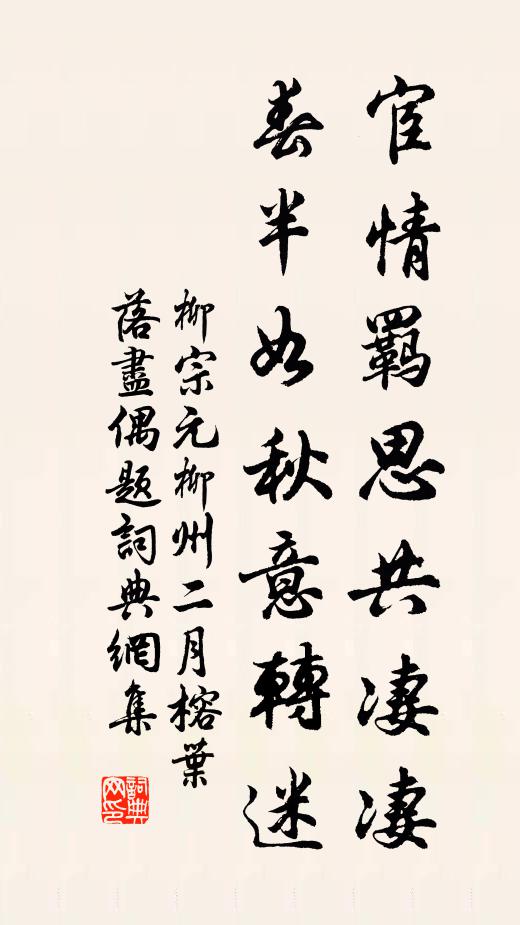 宦情羈思共淒淒
春半如秋意轉迷
柳宗元柳州二月榕葉
落盡偶題詞典網集
詞典
网印